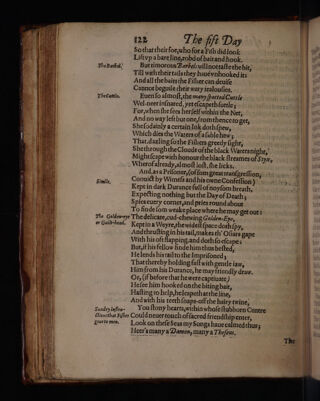 122 The fift Day
So that their for, who for a Fish did look
Lifts vp a bare line, robd of bait and hook.
The Barbell. But timorous Barbels will not taste the bit,
Till with their tails they haue vnhookèd it:
And all the baits the Fisher can deuise
Cannot beguile their wary iealousies.
The Cuttle. Euen so almost, the many spotted Cuttle
Wel-neer insnared, yet escapeth suttle;
For, when she sees her self within the Net,
And no way left but one, from thence to get,
She sodainly a certain Ink doth spew,
Which dies the Waters of a sable hew;
That, dazling so the Fishers greedy sight,
She through the Clouds of the black Waters night,
Might scape with honour the black streames of Styx,
Wherof already, almost lost, she licks.
Simile. And, as a Prisoner, (of som great transgression,
Conuict by Witnes and his owne Confession)
Kept in dark Durance full of noysom breath,
Expecting nothing but the Day of Death;
Spies euery corner, and pries round about
To finde som weak place where he may get out:
The Golden-eye or Guilt-head. The delicate, cud-chewing Golden-Eye,
Kept in a Weyre, the widest space doth spy,
And thrusting in his tail, makes th' Osiars gape
With his oft flapping, and doth so escape:
But, if his fellow finde him thus bested,
He lends his tail to the Imprisoned;
That thereby holding fast with gentle iaw,
Him from his Durance, he may friendly draw.
Or, (if before that he were captiuate)
He see him hooked on the biting bait,
Hasting to help, he leapeth at the line,
And with his teeth snaps-off the hairy twine.
Sundry instructions that Fishes giue to men. You stony hearts, within whose stubborn Centre
Could neuer touch of sacred friendship enter,
Look on these Seas my Songs haue calmed thus;
Heer's many a Damon, many a Theseus.
The